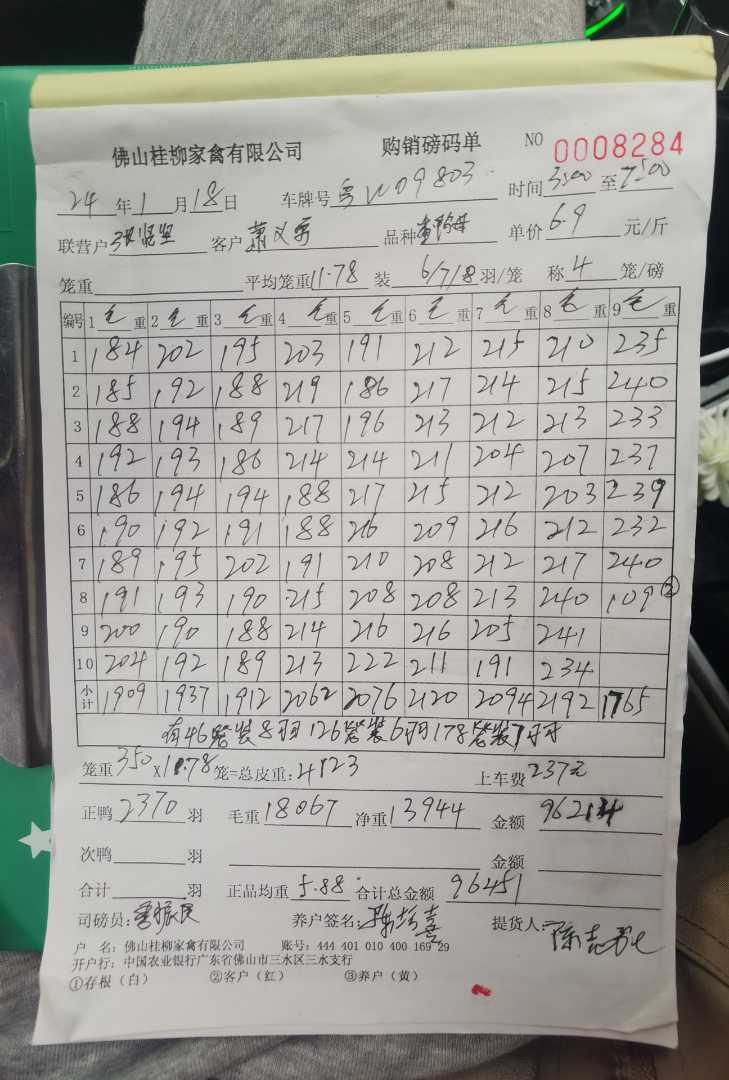 佛山桂柳家禽有限公司 购销磅码单 NO 0008284
24年1月18日 车牌号粤W09803 时间3:00至7:00
联营户 客户萧义 品种 单价6.9元/斤
笼重 平均笼重11.78 装6/7/8羽/笼 称4笼/磅
编号 1毛重 2毛重 3毛重 4毛重 5毛重 6毛重 7毛重 8毛重 9毛重
1 184 202 195 203 191 212 215 210 235
2 185 192 188 219 186 217 214 215 240
3 188 194 189 217 196 213 212 213 233
4 192 193 186 214 214 211 204 207 237
5 186 194 194 188 217 215 212 203 239
6 190 192 191 188 216 209 216 212 232
7 189 195 202 191 210 208 212 217 240
8 191 193 190 215 208 208 213 240 109②
9 200 190 188 214 216 216 205 241
10 204 192 189 213 222 211 191 234
小计 1909 1937 1912 2062 2076 2120 2094 2192 1765
有46笼装8羽126笼装6羽178笼装7羽
笼重350x11.78笼=总皮重:4123 上车费237元
正鸭2370羽 毛重18067 净重13944 金额96214
次鸭 羽 金额
合计 羽 正品均重5.88 合计总金额96451
司磅员: 养户签名: 提货人:
户 名: 佛山桂柳家禽有限公司 账号: 444 401 010 400 169 29
开户行: 中国农业银行广东省佛山市三水区三水支行
①存根（白） ②客户（红） ③养户（黄）